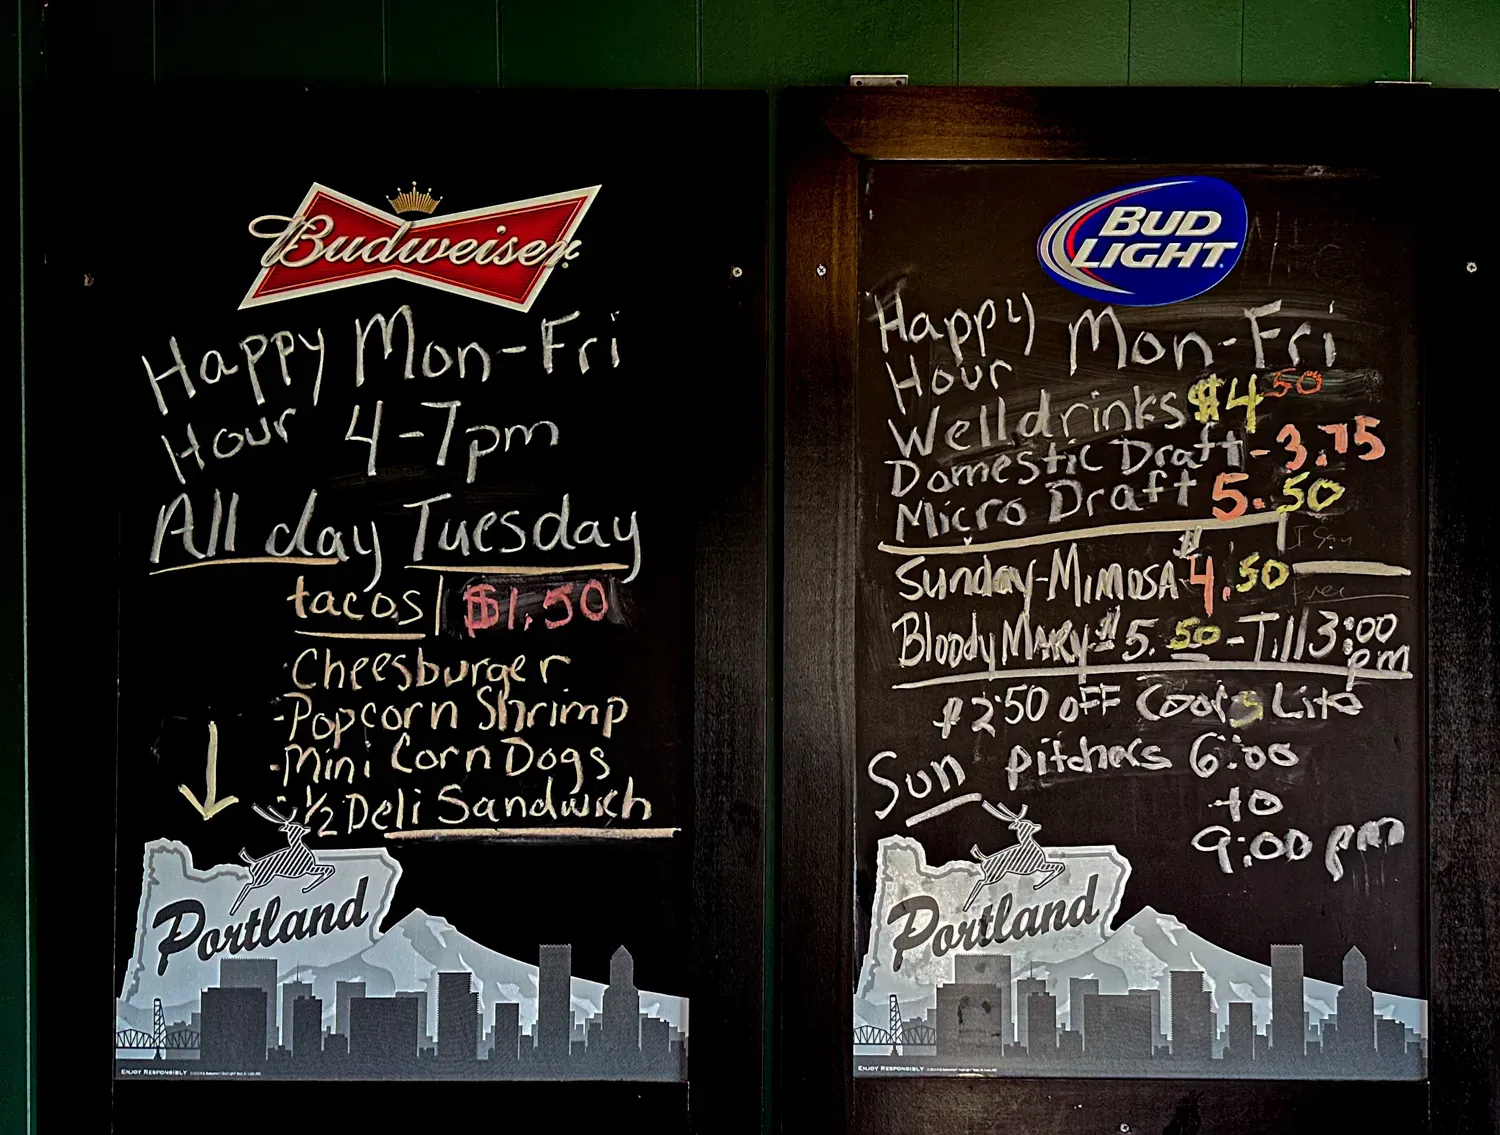 Budweiser
Happy Mon-Fri
Hour 4-7pm
All day Tuesday
tacos | $1.50
Cheesburger
-Popcorn Shrimp
-Mini Corn Dogs
-1/2 Deli Sandwich
Portland
ENJOY RESPONSIBLY
BUD
LIGHT
Happy Mon-Fri
Hour
Well drinks $4 50
Domestic Draft - 3.75
Micro Draft 5.50
Sunday-MIMOSA $4.50
Bloody MARY $5.50-Till 3:00
pm
$2.50 OFF Coors Lite
Sun pitchers 6:00
to
9:00 pm
Portland
ENJOY RESPONSIBLY